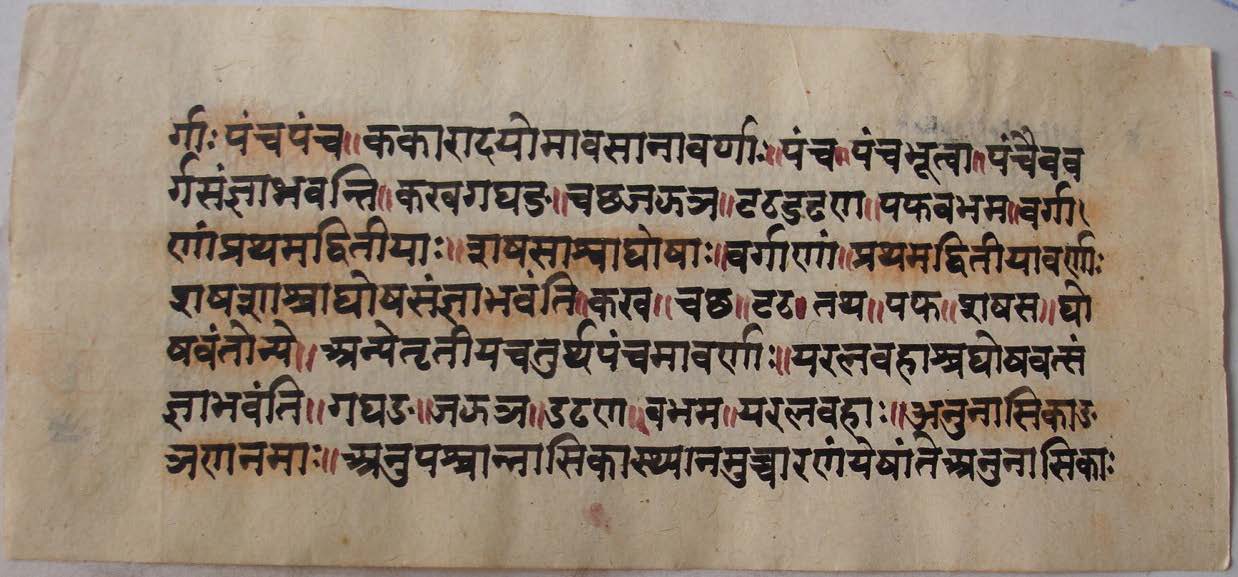 र्गाः पंच पंच॥ ककारादयो मावसाना वर्णाः॥ पंच॥ पंच भूत्वा॥ पंचैव व
र्गसंज्ञा भवन्ति॥ कखगघङ॥ चछजझञ॥ टठडढण॥ पफबभम॥ वर्गा
णां प्रथमद्वितीयाः॥ शषसाश्चाघोषाः॥ वर्गाणां॥ प्रथमद्वितीया वर्णाः
शषशाश्चाघोषसंज्ञा भवंति॥ कख॥ चछ॥ टठ॥ तथ॥ पफ॥ शषस॥ घो
षवंतोन्ये॥ अन्ये तृतीयचतुर्थपंचमा वर्णाः॥ यरलवहाश्च घोषवत्सं
ज्ञा भवंति॥ गघङ॥ जझञ॥ डढण॥ बभम॥ यरलवहाः॥ अनुनासिका ङ
ञणनमाः॥ अनुपश्चान्नासिकास्थानमुच्चारणं येषां ते अनुनासिकाः